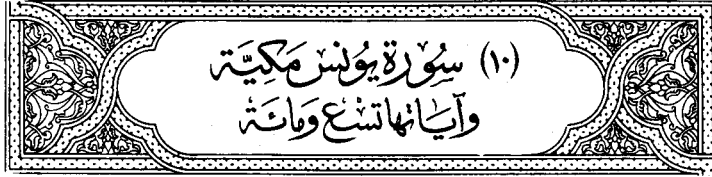 (١٠) سُورَة يُونس مَكيَّة
وَآيَاتها تسْع وَمائَة